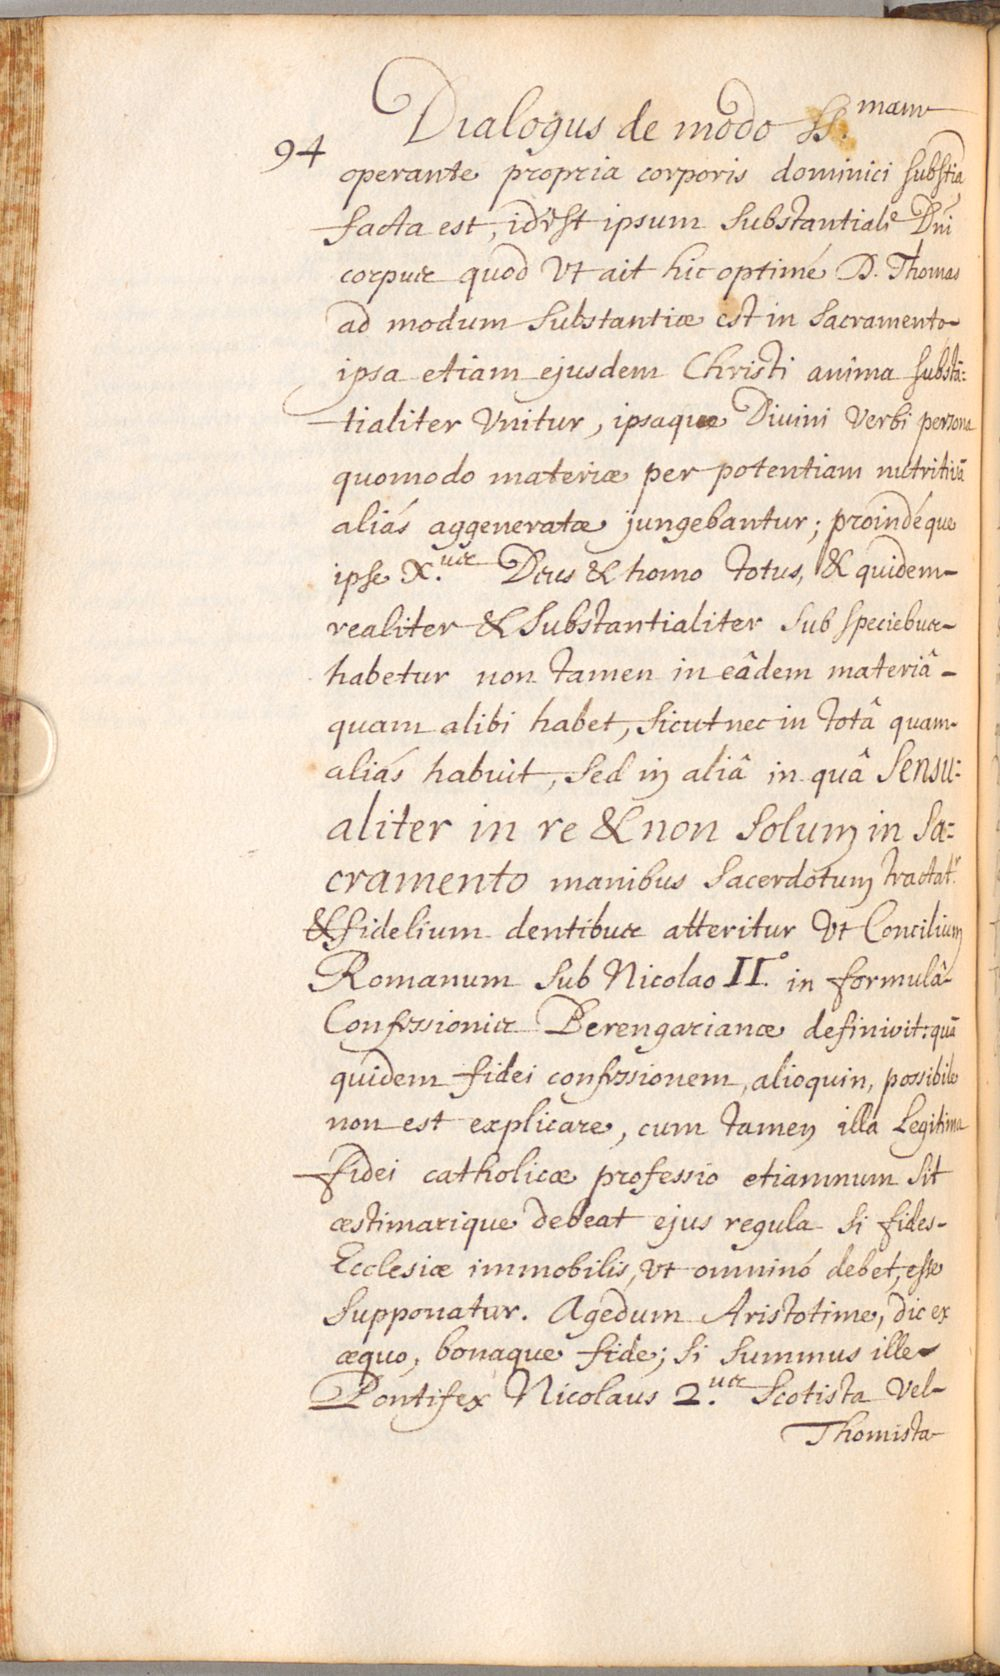 Dialogus de modo SS.mam
94
operante propria corporis dominici substia
facta est, idest ipsum substantiale Dni
corpus quod Vt ait hic optimé D. Thomas
ad modum substantiæ est in Sacramento
ipsa etiam ejusdem Christi anima substã:
tialiter Vnitur, ipsaque Divini Verbi persona
quomodo materiæ per potentiam nutritivã
aliás aggeneratæ jungebantur; proindéque
ipse X.us Deus & homo totus, & quidem
realiter & substantialiter sub speciebus
habetur non tamen in eâdem materiâ
quam alibi habet, sicut nec in totâ quam
aliás habuit, sed in aliâ in quâ sensu:
aliter in re & non solum in Sa:
cramento manibus Sacerdotum tractatr
& fidelium dentibus atteritur Vt Concilium
Romanum sub Nicolao II.o in formulâ
Confessionis Berengarianæ definivit: quã
quidem fidei confessionem, alioquin, possibile
non est explicare, cum tamen illa Legitima
fidei catholicæ professio etiamnum sit
æstimarique debeat ejus regula si fides
Ecclesiæ immobilis, Vt omninó debet, esse
supponatur. Agedum Aristotime, dic ex
æquo, bonaque fide; si summus ille
Pontifex Nicolaus 2.us Scotista Vel
Thomista